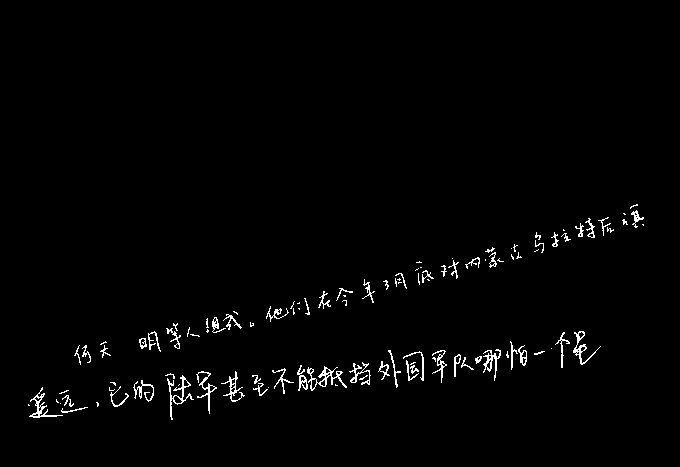 何天明等人组成。他们在今年3月底对内蒙古乌拉特后旗
遥远,它的陆军甚至不能抵挡外国军队哪怕一个星